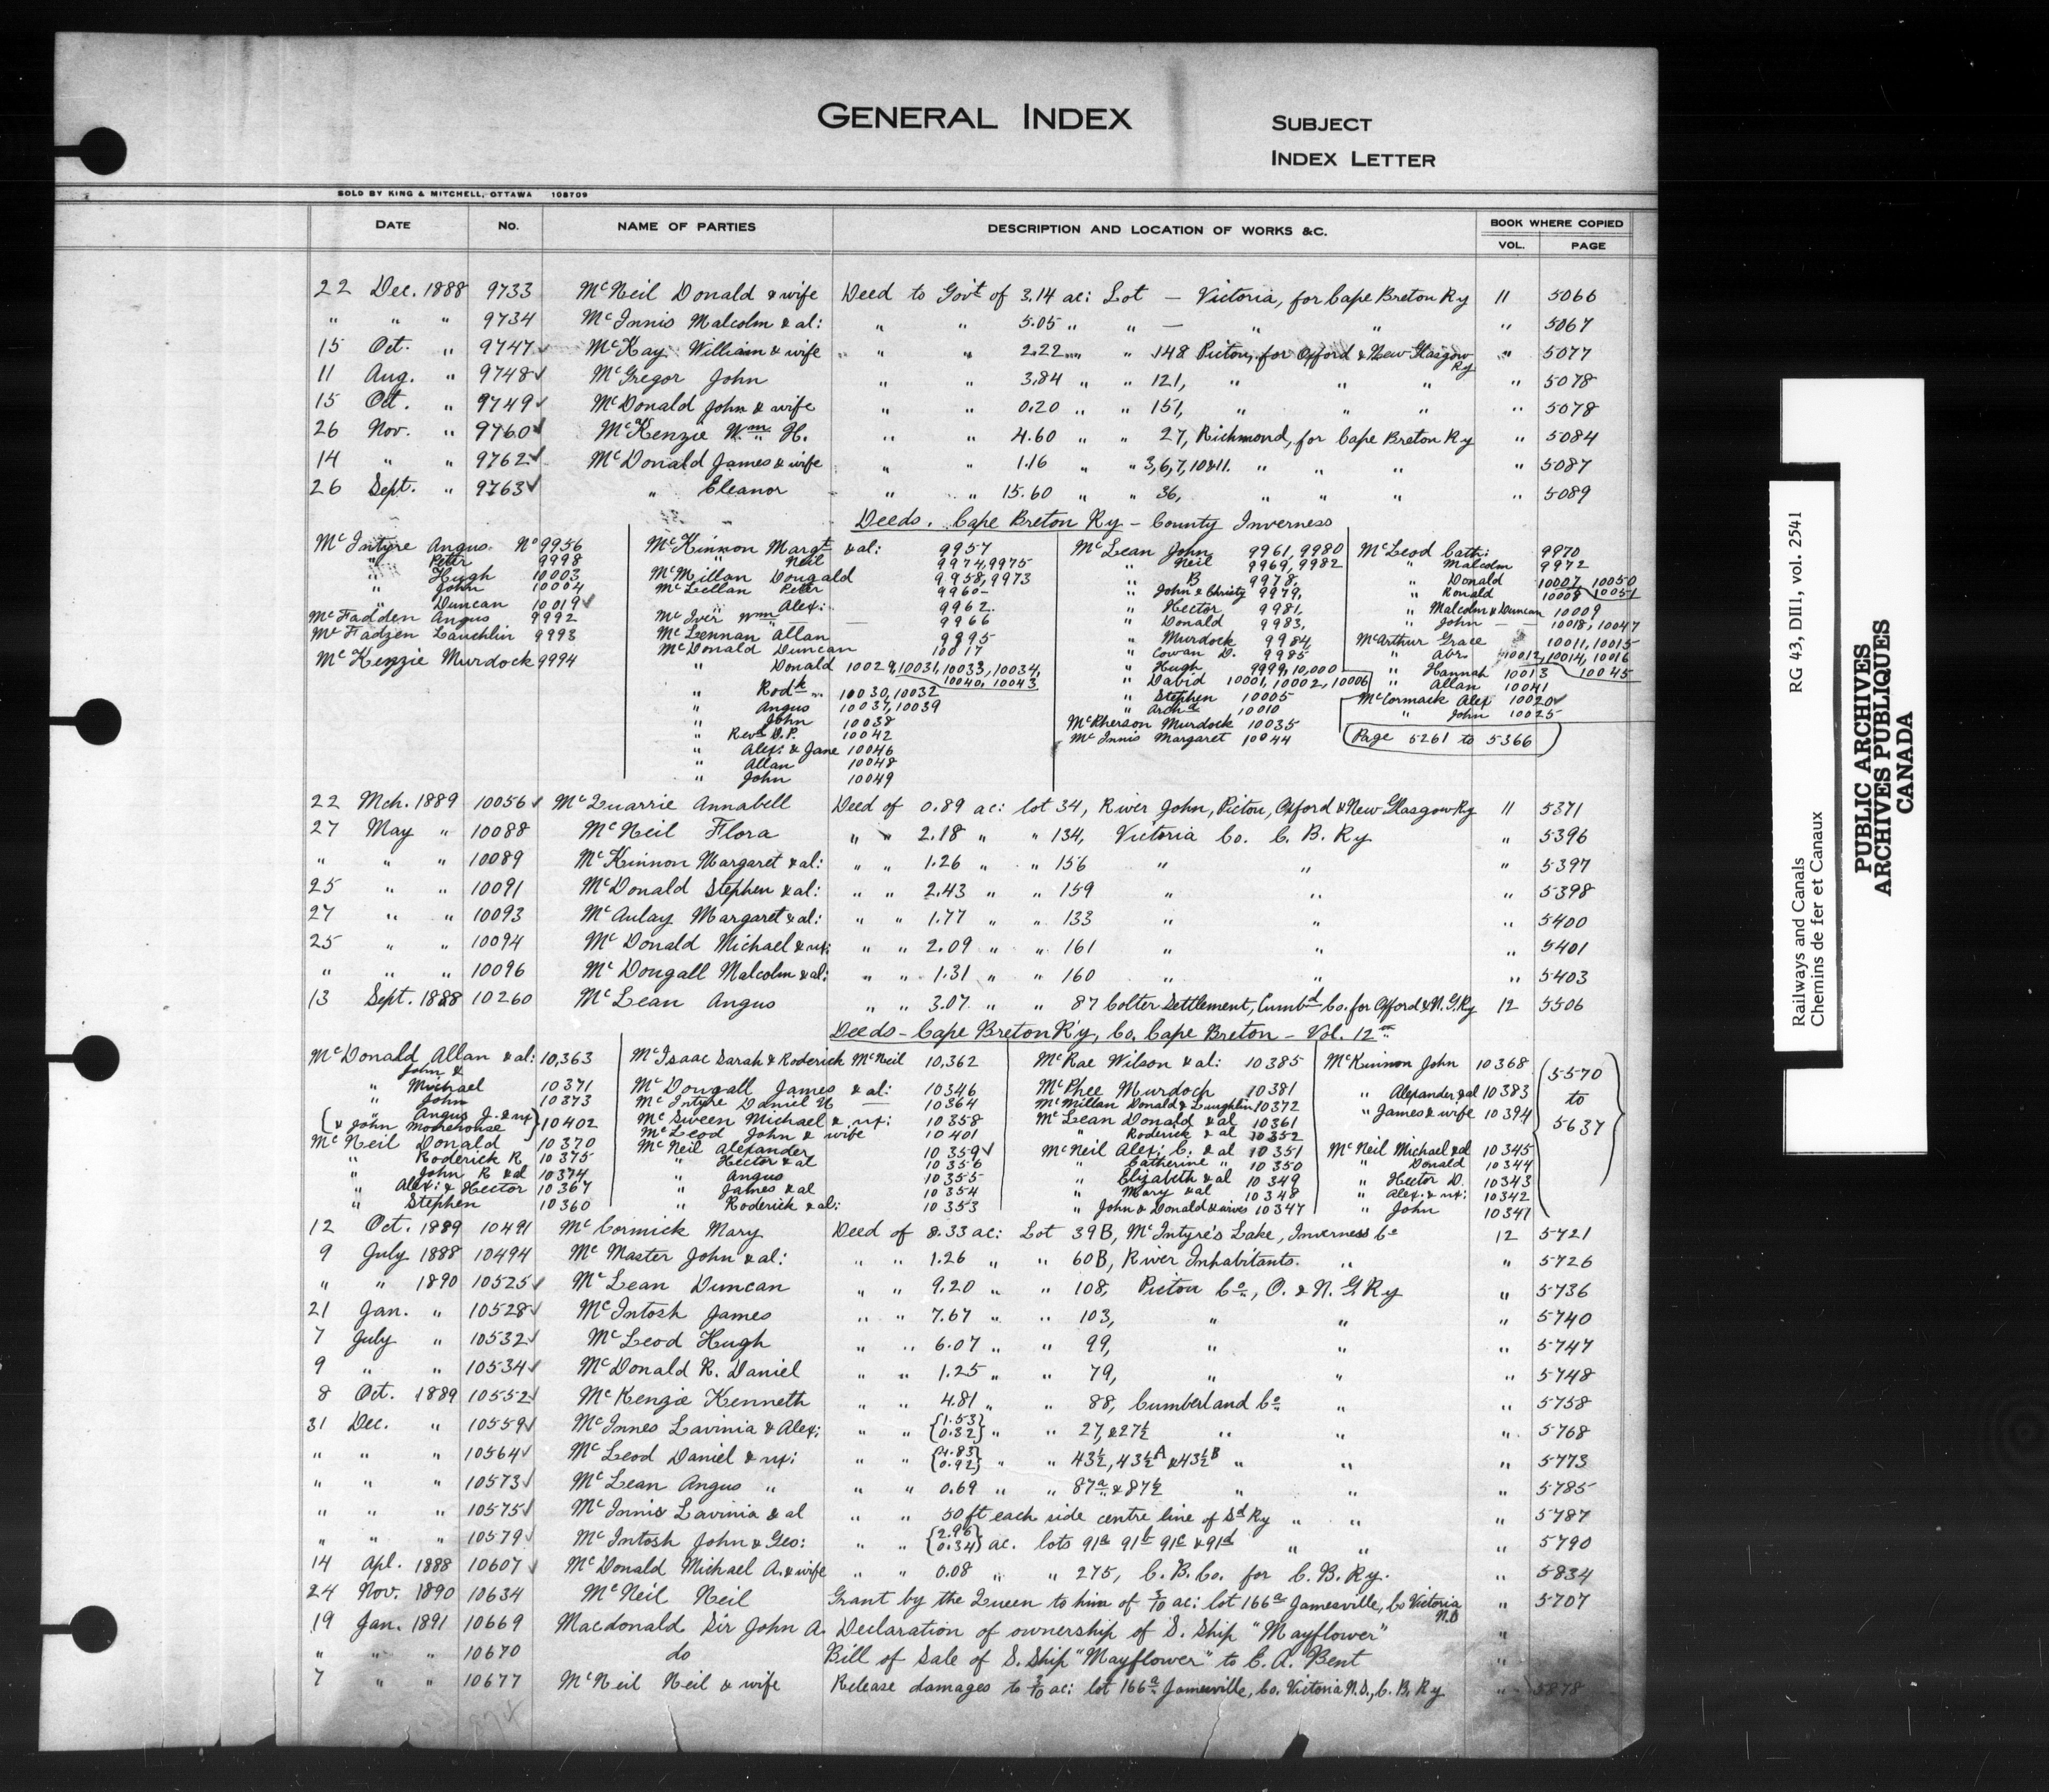 GENERAL INDEX
SUBJECT
INDEX LETTER
SOLD BY KING & MITCHELL, OTTAWA 108709
DATE No. NAME OF PARTIES DESCRIPTION AND LOCATION OF WORKS &C. BOOK WHERE COPIED
VOL. PAGE
22 Dec. 1888 9733 McNeil Donald & wife Deed to Govt of 3.14 ac: Lot — Victoria, for Cape Breton Ry 11 5066
" " " 9734 McInnis Malcolm & al: " " 5.05 " " — " " " 5067
15 Oct. " 9747 ✓ McKay William & wife " " 2.22 " " 148 Pictou, for Oxford & New Glasgow Ry " 5077
11 Aug. " 9748 ✓ McGregor John " " 3.84 " " 121, " " " " 5078
15 Oct. " 9749 ✓ McDonald John & wife " " 0.20 " " 151, " " " " 5078
26 Nov. " 9760 ✓ McKenzie Wm H. " " 4.60 " " 27, Richmond, for Cape Breton Ry " 5084
14 " " 9762 ✓ McDonald James & wife " " 1.16 " " 3,6,7,10&11. " " " " 5087
26 Sept. " 9763 ✓ " Eleanor " " 15.60 " " 36, " " " " 5089
Deeds. Cape Breton Ry — County Inverness
McIntyre Angus No 9956
" Peter 9998
" Hugh 10003
" John 10004
" Duncan 10019 ✓
McFadden Angus 9992
McFadzen Lauchlin 9993
McKenzie Murdock 9994
McKinnon Margt & al: 9957
" Neil 9974, 9975
McMillan Dougald 9958, 9973
McLellan Peter 9960
" Alex: 9962
McIver Wm — 9966
McLennan Allan 9995
McDonald Duncan 10017
" Donald 10029, 10031, 10033, 10034,
10040, 10043
" Rodk " 10030, 10032
" Angus 10037, 10039
" John 10038
" Revd D.P. 10042
" Alex: & Jane 10046
" Allan 10048
" John 10049
McLean John 9961, 9980
" Neil 9969, 9982
" B 9978,
" John & Christy 9979,
" Hector 9981,
" Donald 9983,
" Murdock 9984,
" Cowan D. 9985
" Hugh 9999, 10,000
" David 10001, 10002, 10006
" Stephen 10005
" Archd 10010
McPherson Murdock 10035
McInnis Margaret 10044
McLeod Cath: 9970
" Malcolm 9972
" Donald 10007, 10050
" Ronald 10008 10051
" Malcolm & Duncan 10009
" John — 10018, 10047
McArthur Grace 10011, 10015
" Abr. 10012, 10014, 10016
" Hannah 10013 10045
" Allan 10041
McCormack Alex 10020 ✓
" John 10025
Page 5261 to 5366
22 Mch. 1889 10056 ✓ McQuarrie Annabell Deed of 0.89 ac: lot 34, River John, Pictou, Oxford & New Glasgow Ry 11 5371
27 May " 10088 McNeil Flora " " 2.18 " " 134, Victoria Co. C. B. Ry " 5396
" " " 10089 McKinnon Margaret & al: " " 1.26 " " 156 " " " 5397
25 " " 10091 McDonald Stephen & al: " " 2.43 " " 159 " " " 5398
27 " " 10093 McAulay Margaret & al: " " 1.77 " " 133 " " " 5400
25 " " 10094 McDonald Michael & ux: " " 2.09 " " 161 " " " 5401
" " " 10096 McDougall Malcolm & al: " " 1.31 " " 160 " " " 5403
13 Sept. 1888 10260 McLean Angus " " 3.07 " " 87 Colter Settlement, Cumbd Co. for Oxford & N.G. Ry 12 5506
Deeds — Cape Breton R'y, Co. Cape Breton — Vol. 12
McDonald Allan & al: 10,363
John &
" Michael 10371
" John 10373
" Angus J. & ux
& John Morehouse 10402
McNeil Donald 10370
" Roderick R 10375
" John R & al 10374
" Alex: & Hector 10367
" Stephen 10360
McIsaac Sarah & Roderick McNeil 10,362
McDougall James & al: 10346
McIntyre Daniel H — 10364
McSween Michael & ux: 10358
McLeod John & wife 10401
McNeil Alexander 10359 ✓
" Hector & al 10356
" Angus 10355
" James & al 10354
" Roderick & al: 10353
McRae Wilson & al: 10385
McPhee Murdoch 10381
McMillan Donald & Laughlin 10372
McLean Donald & al 10361
" Roderick & al 10352
McNeil Alex: C. & al 10351
" Catherine " 10350
" Elizabeth & al 10349
" Mary & al 10348
" John & Donald & wives 10347
McKinnon John 10368
" Alexander & al 10383
" James & wife 10394
McNeil Michael & al 10345
" Donald 10344
" Hector D. 10343
" Alex. & ux: 10342
" John 10341
5570
to
5637
12 Oct. 1889 10491 McCormick Mary Deed of 8.33 ac: Lot 39B, McIntyre's Lake, Inverness Co 12 5721
9 July 1888 10494 McMaster John & al: " " 1.26 " " 60B, River Inhabitants. " " 5726
" " 1890 10525 ✓ McLean Duncan " " 9.20 " " 108, Pictou Co, O. & N. G. Ry " 5736
21 Jan. " 10528 ✓ McIntosh James " " 7.67 " " 103, " " " 5740
7 July " 10532 ✓ McLeod Hugh " " 6.07 " " 99, " " " 5747
9 " " 10534 ✓ McDonald R. Daniel " " 1.25 " " 79, " " " 5748
8 Oct. 1889 10552 ✓ McKenzie Kenneth " " 4.81 " " 88, Cumberland Co " " 5758
31 Dec. " 10559 ✓ McInnes Lavinia & Alex: " " {1.53 0.32} " " 27, & 27½ " " " 5768
" " " 10564 ✓ McLeod Daniel & ux: " " {4.83 0.92} " " 43½, 43½A & 43½B " " " 5773
" " " 10573 ✓ McLean Angus " " " 0.69 " " 87a & 87½ " " " 5785
" " " 10575 ✓ McInnis Lavinia & al " " 50 ft each side centre line of Sd Ry " " " 5787
" " " 10579 ✓ McIntosh John & Geo: " " {2.96 0.34} ac. lots 91a 91b 91c & 91d " " " 5790
14 Apl. 1888 10607 ✓ McDonald Michael A. & wife " " 0.08 " " 275, C. B. Co. for C. B. Ry. " 5834
24 Nov. 1890 10634 McNeil Neil Grant by the Queen to him of 3/10 ac: lot 166a Jamesville, Co Victoria N.S " 5707
19 Jan. 1891 10669 Macdonald Sir John A. Declaration of ownership of S. Ship "Mayflower" "
" " " 10670 do Bill of Sale of S. Ship "Mayflower" to E. A. Bent "
7 " " 10677 McNeil Neil & wife Release damages to 3/10 ac: lot 166a Jamesville, Co. Victoria N.S., C. B. Ry " 5878
RG 43, DIII1, vol. 2541
Railways and Canals
Chemins de fer et Canaux
PUBLIC ARCHIVES
ARCHIVES PUBLIQUES
CANADA